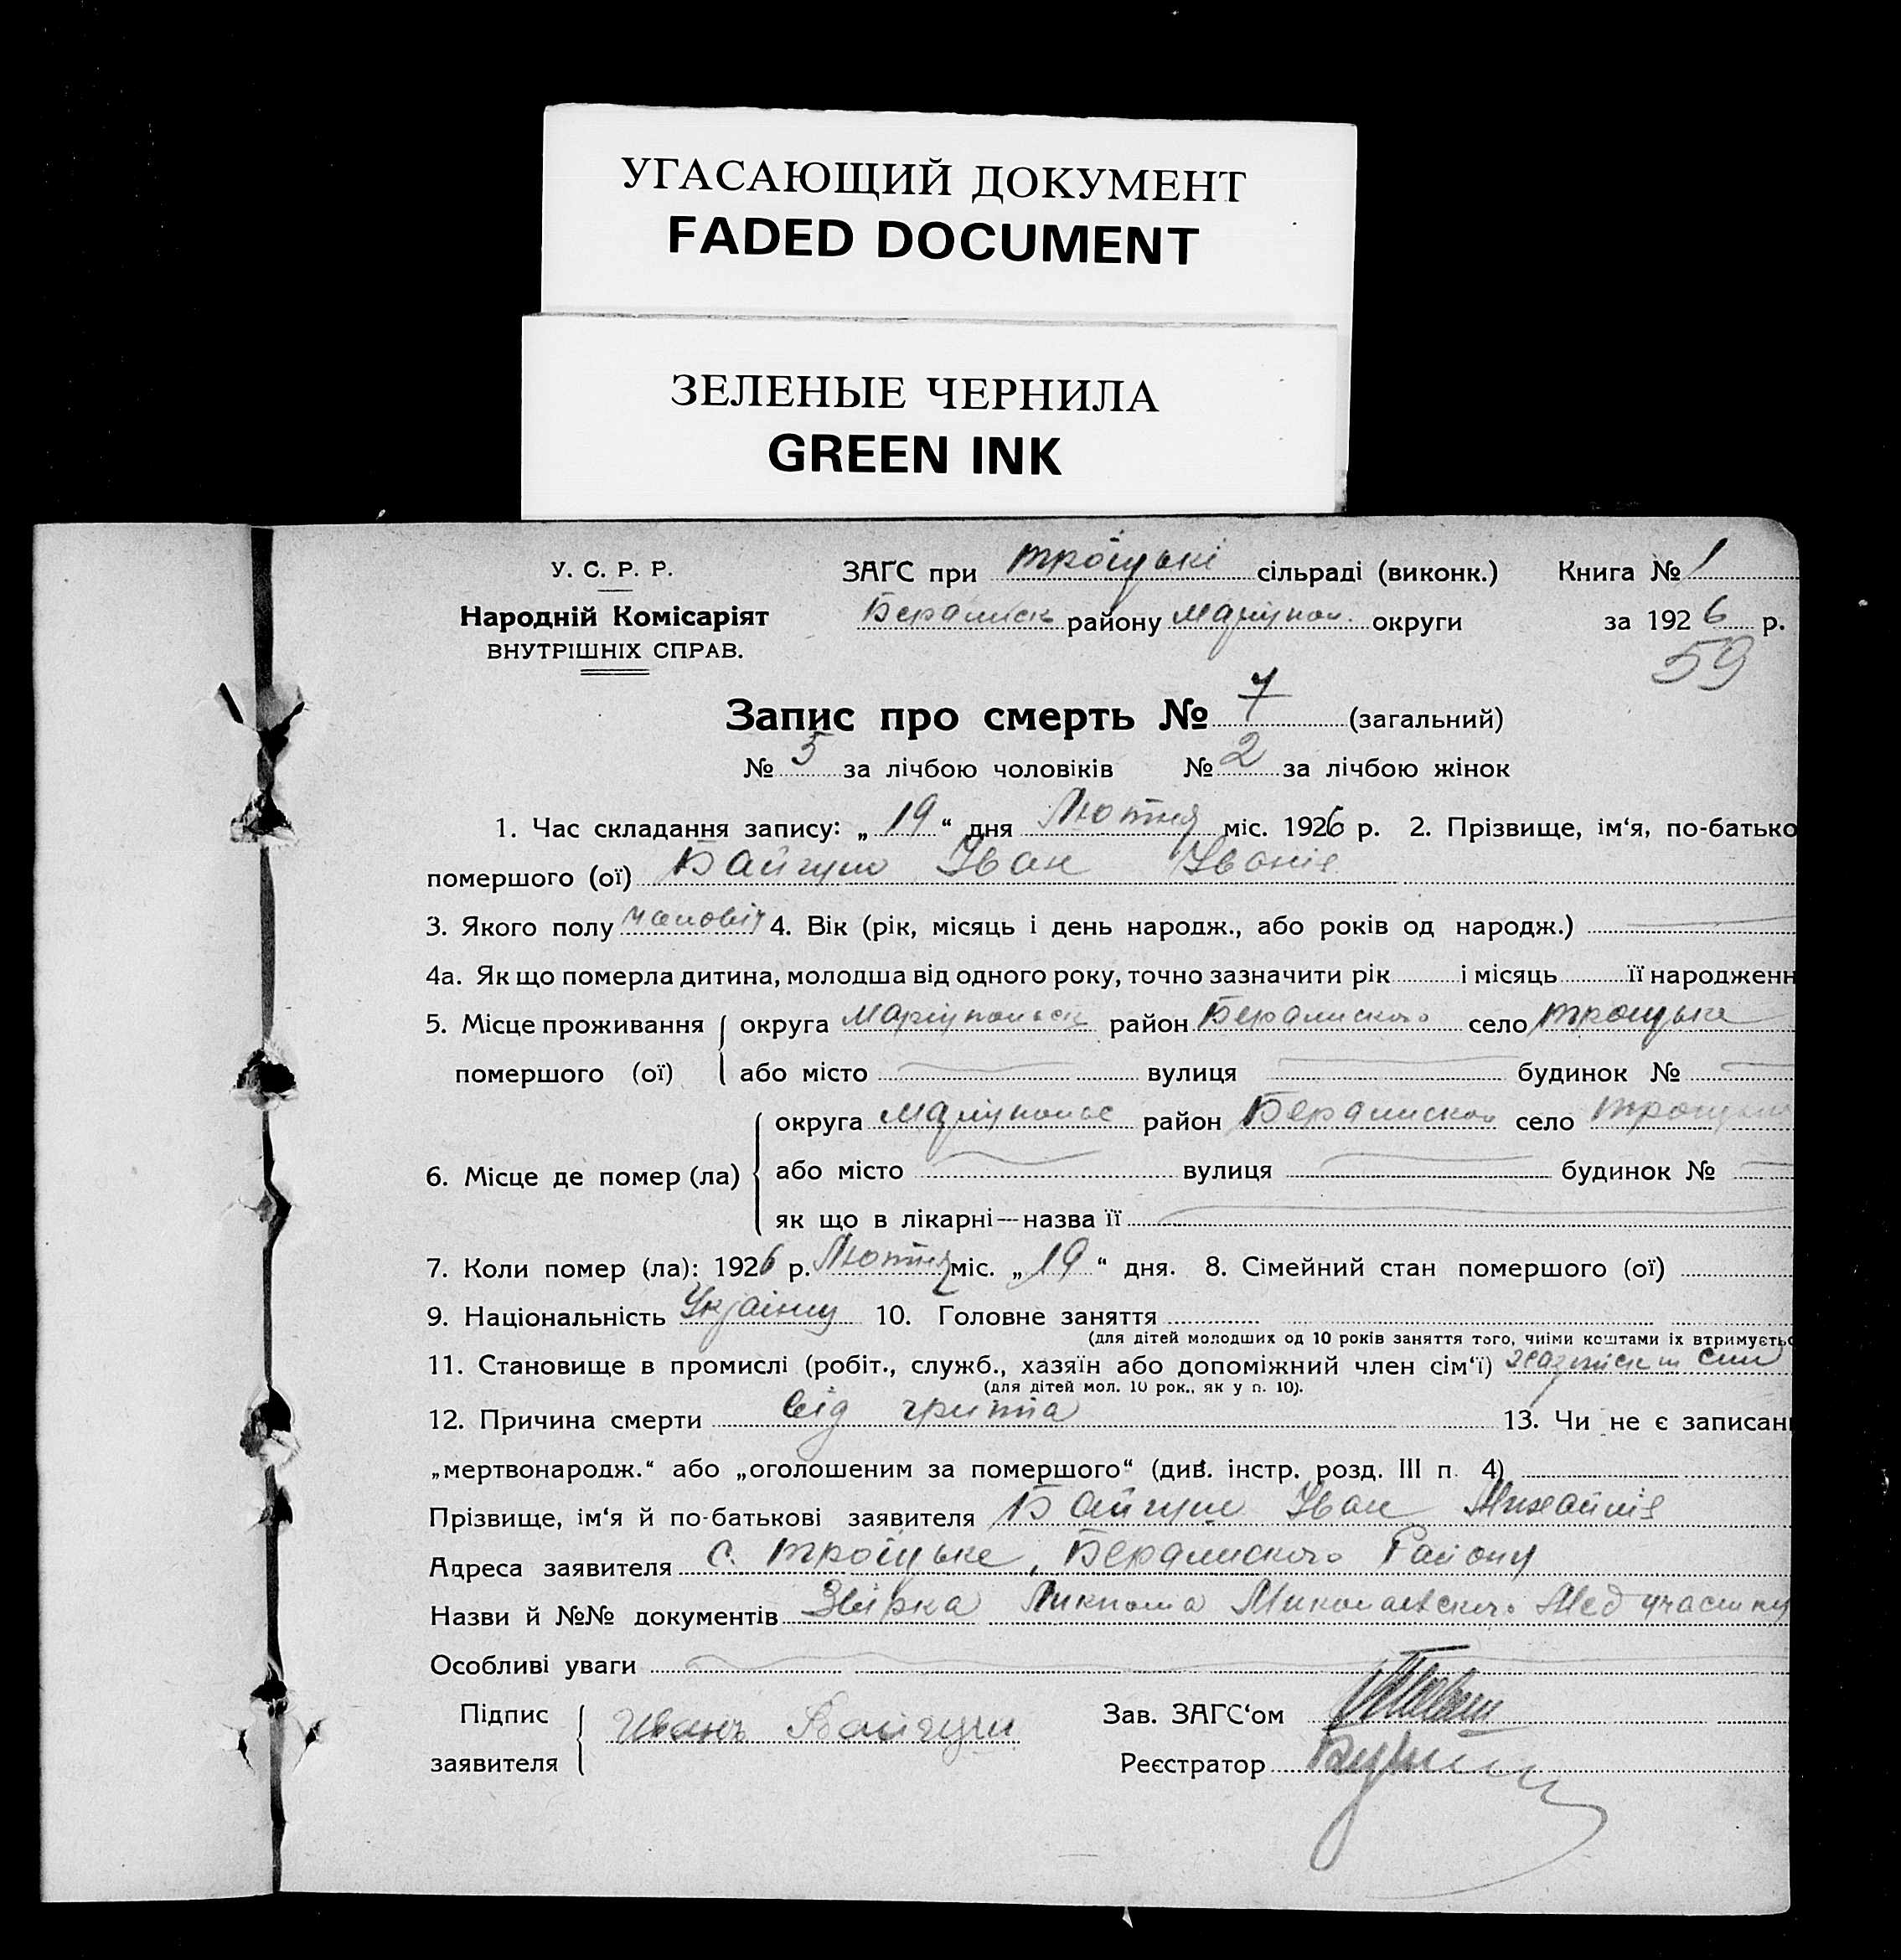 УГАСАЮЩИЙ ДОКУМЕНТ
FADED DOCUMENT
ЗЕЛЕНЫЕ ЧЕРНИЛА
GREEN INK
У. С. Р. Р. ЗАГС при троїцькі сільраді (виконк.) Книга № 1
Народній Комісаріят району округи за 1926 р.
ВНУТРІШНІХ СПРАВ.
59
Запис про смерть № 7 (загальний)
№ 5 за лічбою чоловіків № 2 за лічбою жінок
1. Час складання запису: „ 19 “ дня Лютня міс. 1926 р. 2. Прізвище, ім‘я, по-батько
помершого (ої) Байгуш Іван Іванів
3. Якого полу чоловіч 4. Вік (рік, місяць і день народж., або років од народж.)
4а. Як що померла дитина, молодша від одного року, точно зазначити рік і місяць її народженн
5. Місце проживання округа район село троцьке
помершого (ої) або місто вулиця будинок №
округа район село
6. Місце де помер (ла) або місто вулиця будинок №
як що в лікарні—назва її
7. Коли помер (ла): 1926 р. Лютня міс. „ 19 “ дня. 8. Сімейний стан помершого (ої)
9. Національність 10. Головне заняття
(для дітей молодших од 10 років заняття того, чиїми коштами їх втримуєтьс
11. Становище в промислі (робіт., служб., хазяїн або допоміжний член сім‘ї) син
(для дітей мол. 10 рок., як у п. 10).
12. Причина смерти від грипа 13. Чи не є записан
„мертвонародж.“ або „оголошеним за помершого“ (див. інстр. розд. III п 4)
Прізвище, ім‘я й по-батькові заявителя Байгуш Іван Михайлів
Адреса заявителя с. троїцьке, Району
Назви й №№ документів Мед участку
Особливі уваги
Підпис Иванъ Байгуш Зав. ЗАГС‘ом
заявителя Реєстратор